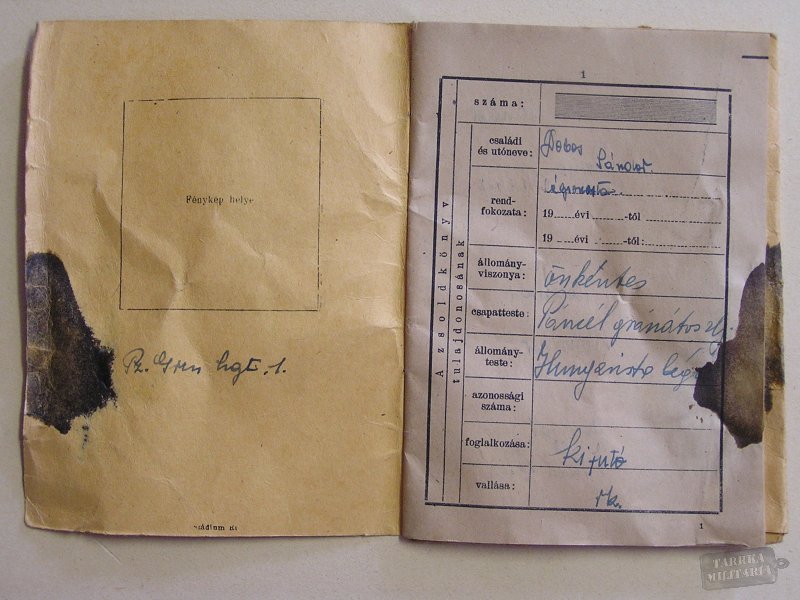 Fénykép helye
Pz. Gren hgt. 1.
Stádium Rt
1
száma:
A zsoldkönyv
tulajdonosának
családi
és utóneve:
Dobos
Sándor
rend-
fokozata:
19 ___ évi ___ -tól
19 ___ évi ___ -tól:
állomány-
viszonya:
önkéntes
csapatteste:
Páncél gránátos
állomány-
teste:
Hungarista
azonossági
száma:
foglalkozása:
kifutó
vallása:
rk.
1
TARRKA
MILITARIA